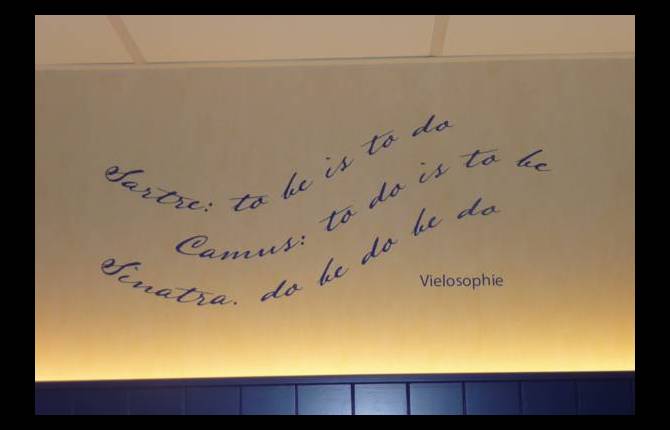 Sartre: to be is to do
Camus: to do is to be
Sinatra: do be do be do
Vielosophie